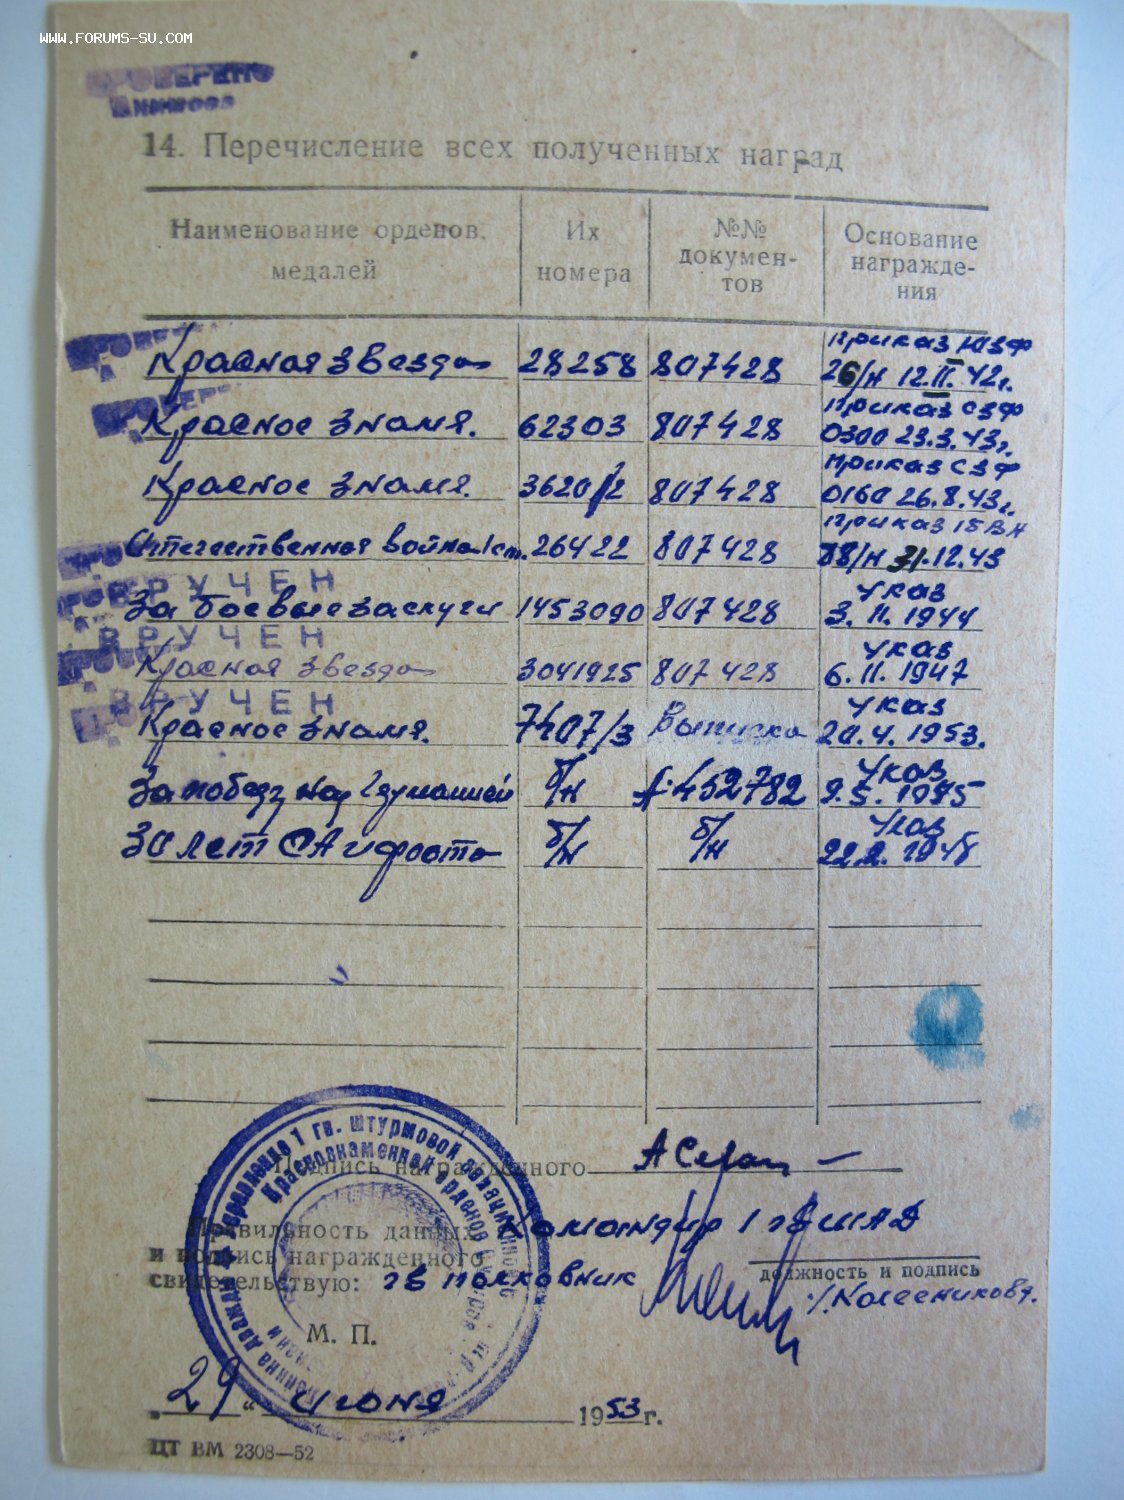 WWW.FORUMS-SU.COM
ПРОВЕРЕНО
14. Перечисление всех полученных наград
Наименование орденов, медалей Их номера №№ документов Основание награждения
Красная звезда 28258 807428 Приказ ЮЗФ 26/н 12.II.42г.
Красное знамя. 62303 807428 Приказ СЗФ 0300 23.3.43г.
Красное знамя. 3620/2 807428 Приказ СЗФ 0160 26.8.43г.
Отечественная война 1 ст. 26422 807428 Приказ 15 ВА 88/н 31.12.43
ВРУЧЕН
За боевые заслуги 1453090 807428 Указ 3.11.1944
ВРУЧЕН
Красная звезда 3041925 807428 Указ 6.11.1947
ВРУЧЕН
Красное знамя. 7407/3 Выписка Указ 20.4.1953.
За победу над Германией б/н А. 452782 Указ 9.5.1945
30 лет СА и флота б/н б/н Указ 22.2.1948
Подпись награжденного
Правильность данных Командир 1 гв ШАД
и подпись награжденного
свидетельствую: гв полковник должность и подпись
/Колесников/.
М. П.
29 „ июня 1953 г.
ЦТ ВМ 2308—52